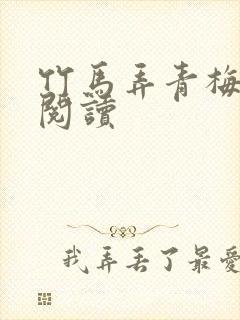 竹馬弄青梅
閱讀
我弄丟了最愛